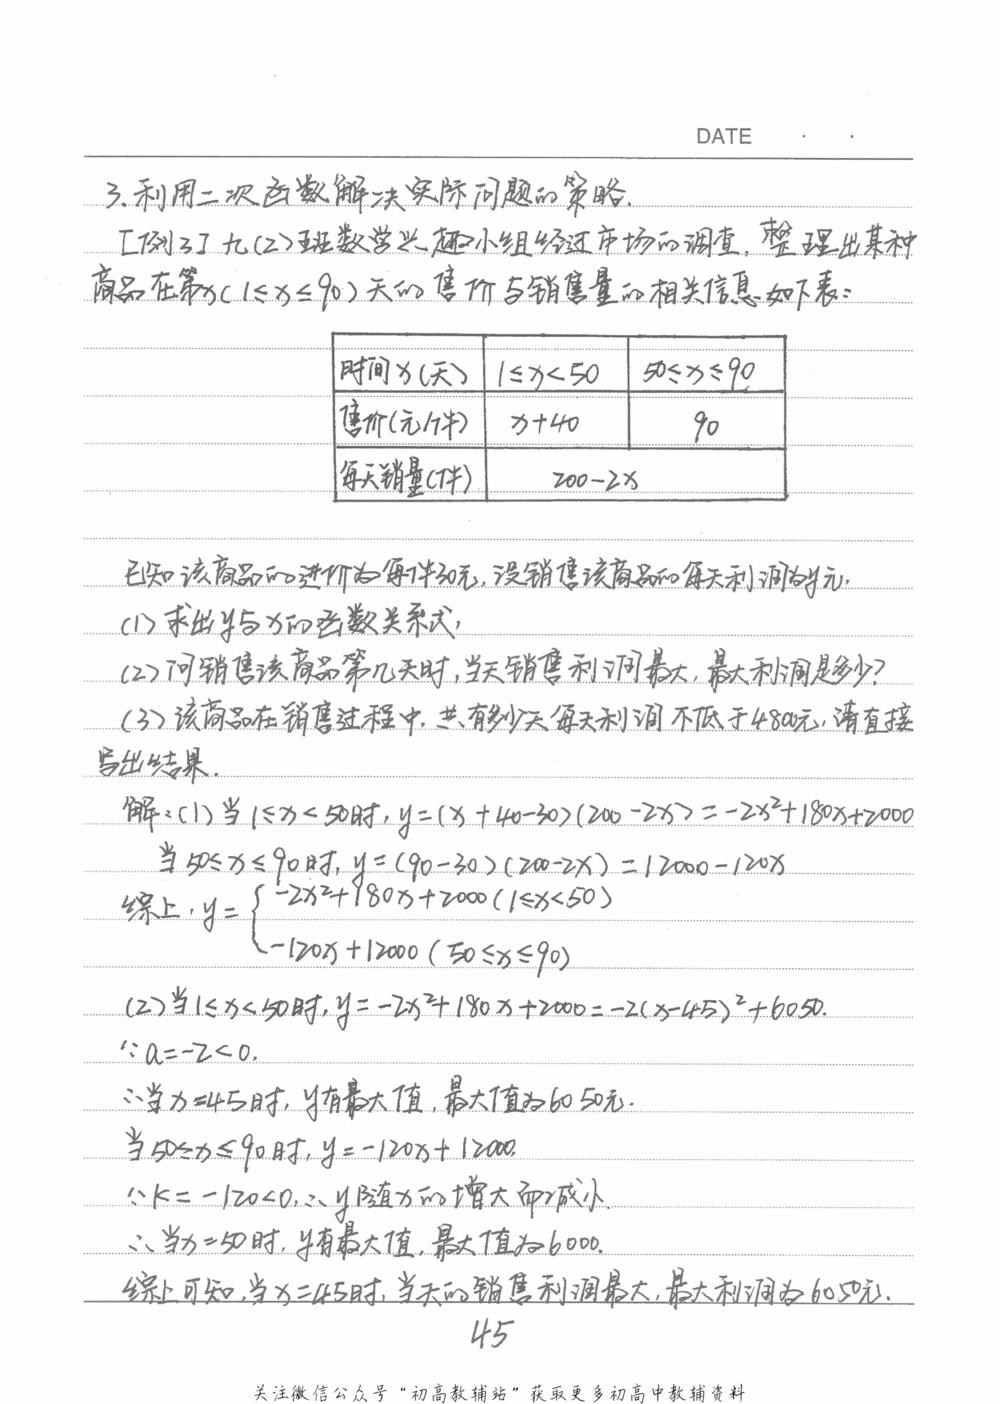 DATE · ·
3.利用二次函数解决实际问题的策略.
[例3]九(2)班数学兴趣小组经过市场的调查,整理出某种
商品在第x(1≤x≤90)天的售价与销售量的相关信息如下表:
时间x(天) 1≤x<50 50≤x≤90
售价(元/件) x+40 90
每天销量(件) 200-2x
已知该商品的进价为每件30元,设销售该商品的每天利润为y元.
(1)求出y与x的函数关系式,
(2)问销售该商品第几天时,当天销售利润最大,最大利润是多少?
(3)该商品在销售过程中,共有多少天每天利润不低于4800元,请直接
写出结果.
解:(1)当1≤x<50时,y=(x+40-30)(200-2x)=-2x²+180x+2000
当50≤x≤90时,y=(90-30)(200-2x)=12000-120x
综上,y={-2x²+180x+2000(1≤x<50)
-120x+12000(50≤x≤90)
(2)当1≤x<50时,y=-2x²+180x+2000=-2(x-45)²+6050.
∵a=-2<0,
∴当x=45时,y有最大值,最大值为6050元.
当50≤x≤90时,y=-120x+12000.
∵k=-120<0,∴y随x的增大而减小.
∴当x=50时,y有最大值,最大值为6000.
综上可知,当x=45时,当天的销售利润最大,最大利润为6050元.
45
关注微信公众号“初高教辅站”获取更多初高中教辅资料